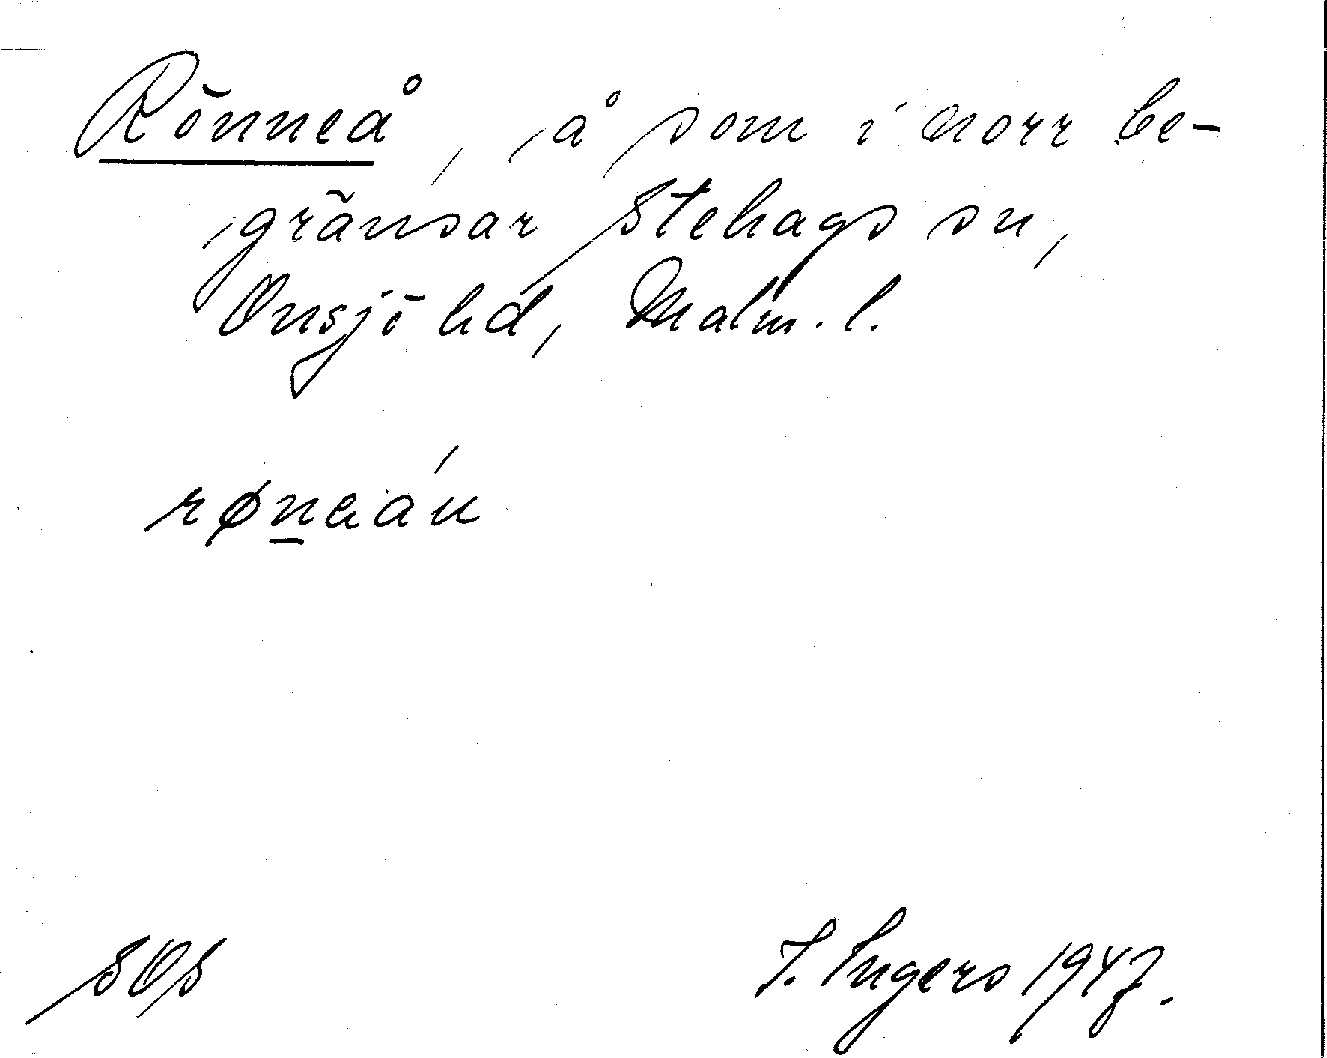 Rönneå, å som i norr be-
gränsar Stehags sn,
Onsjö hd, Malm. l.
SOS
I. Ingers 1947.